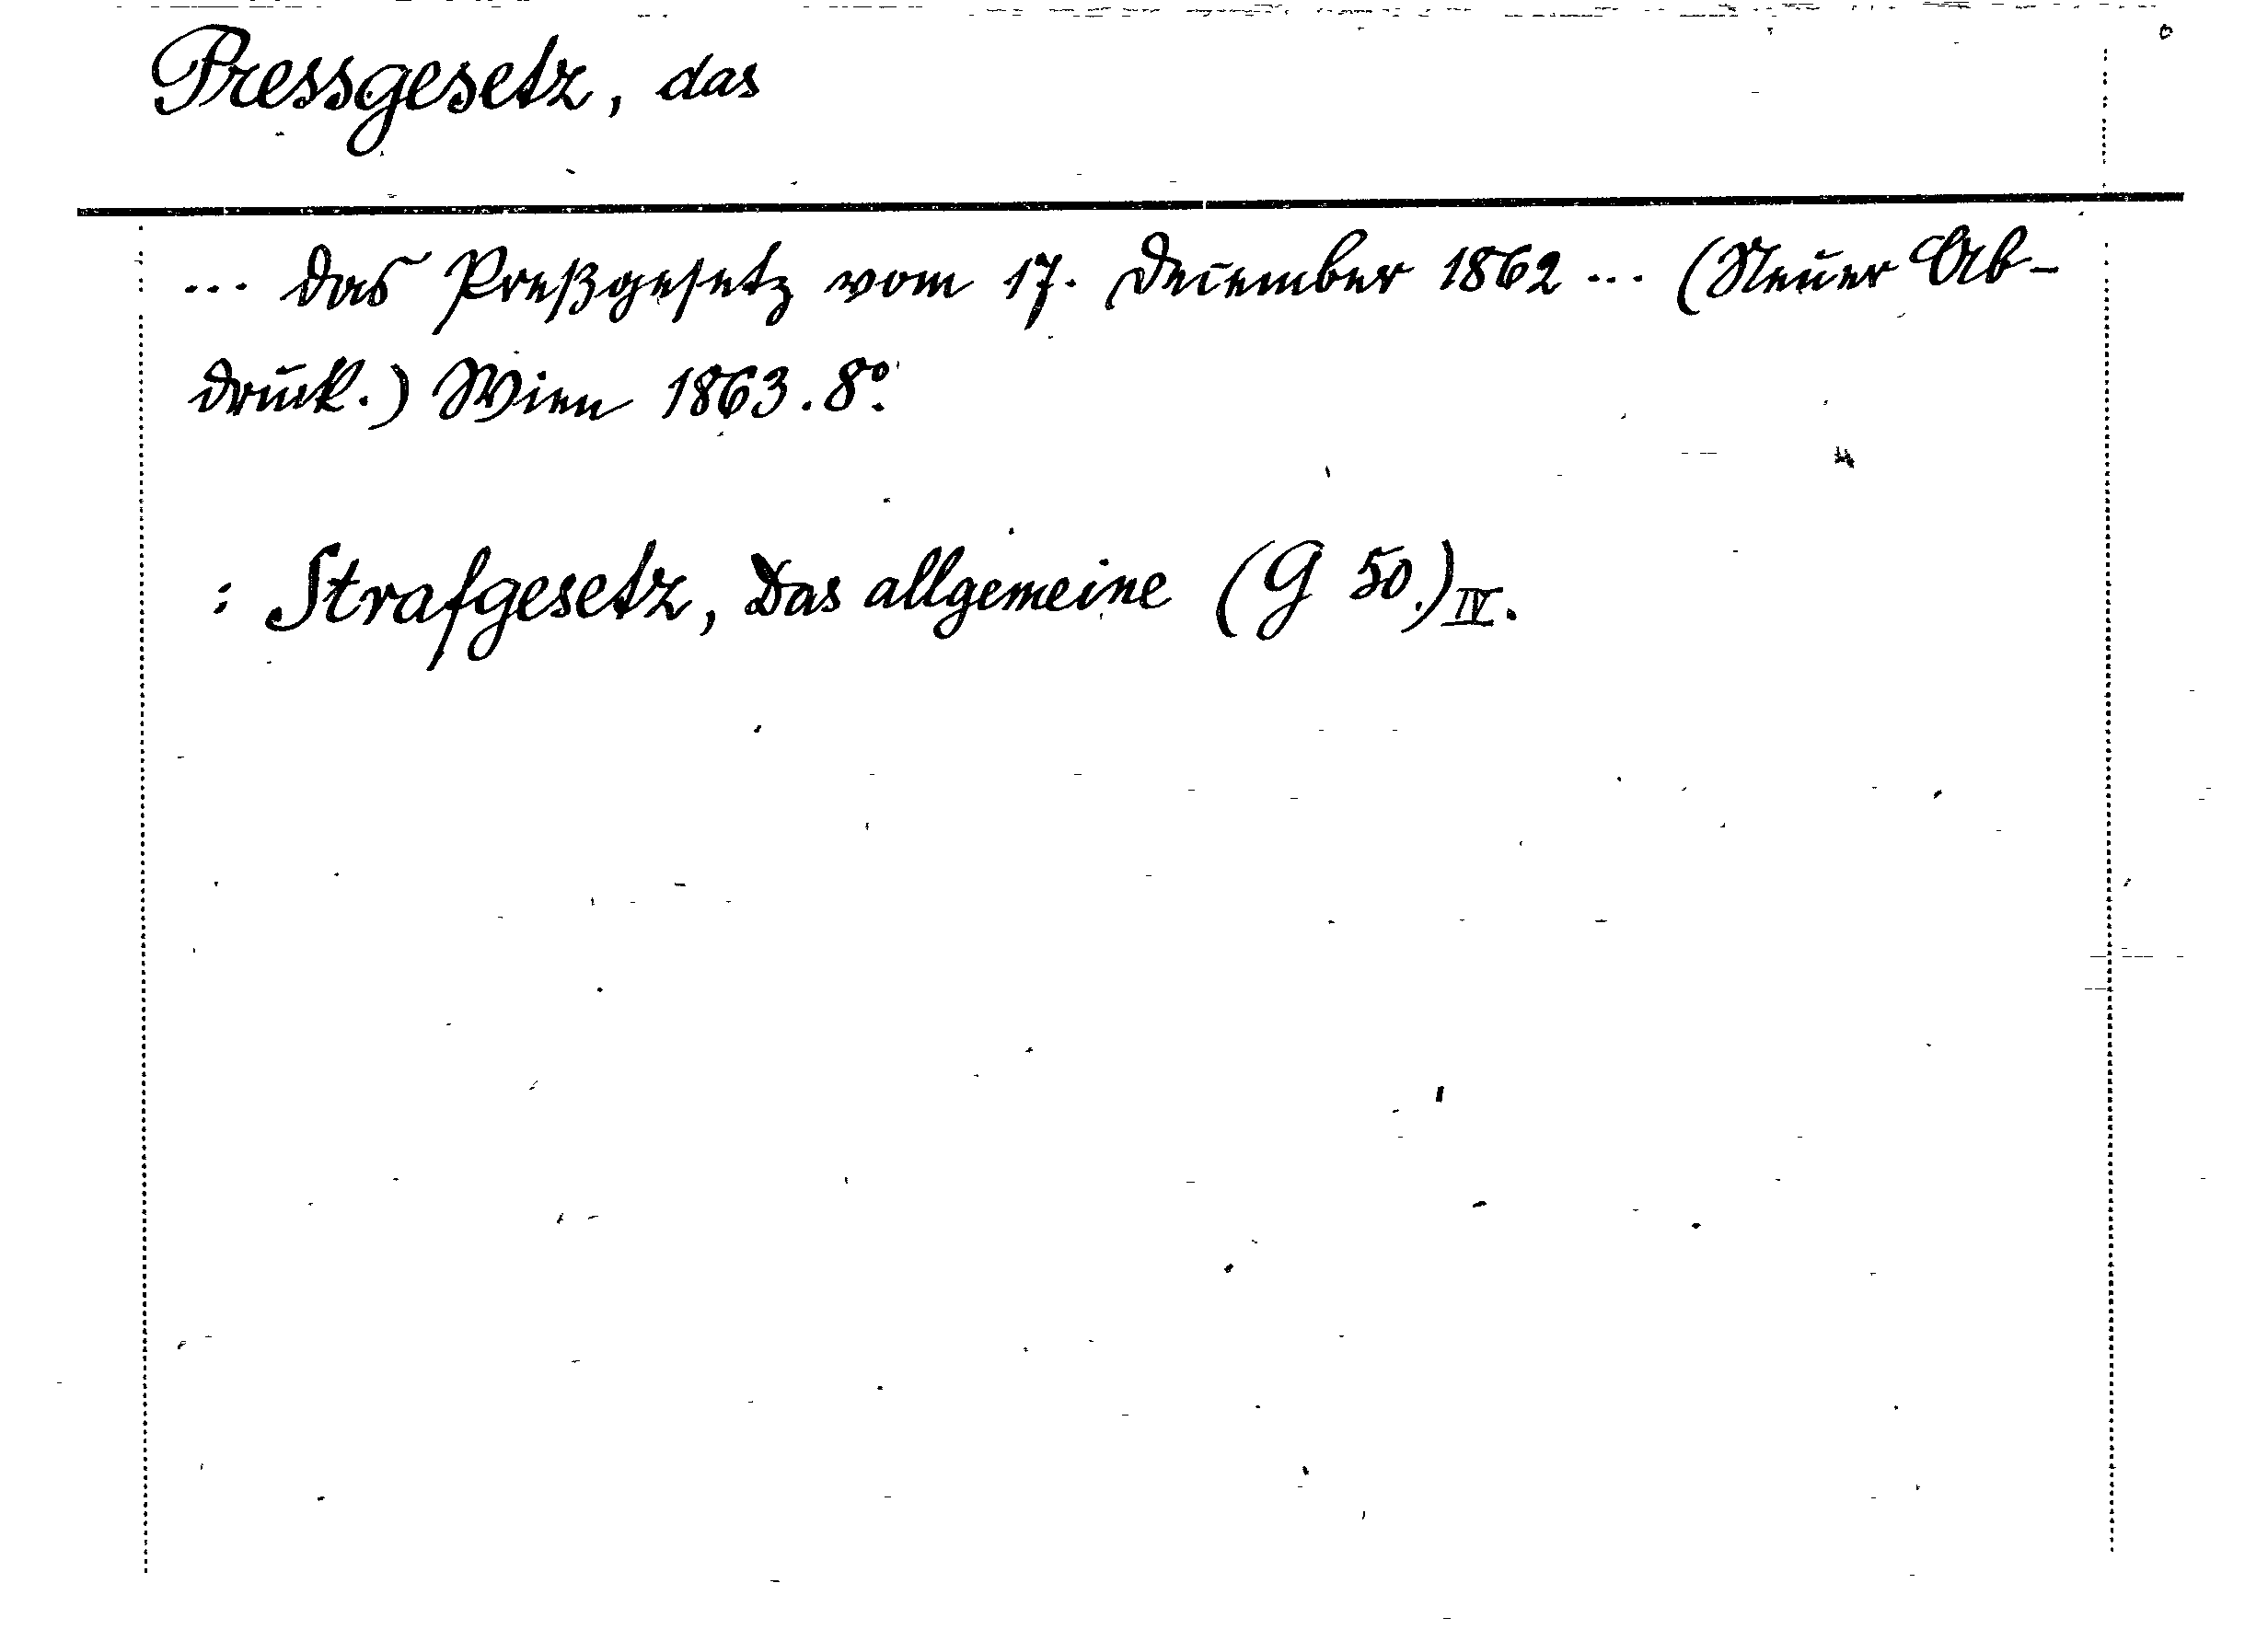 Pressgesetz, das
... das Preßgesetz vom 17. December 1862 ... (Neuer Ab-
druck.) Wien 1863. 8º.
: Strafgesetz, Das allgemeine (G 50.) IV.